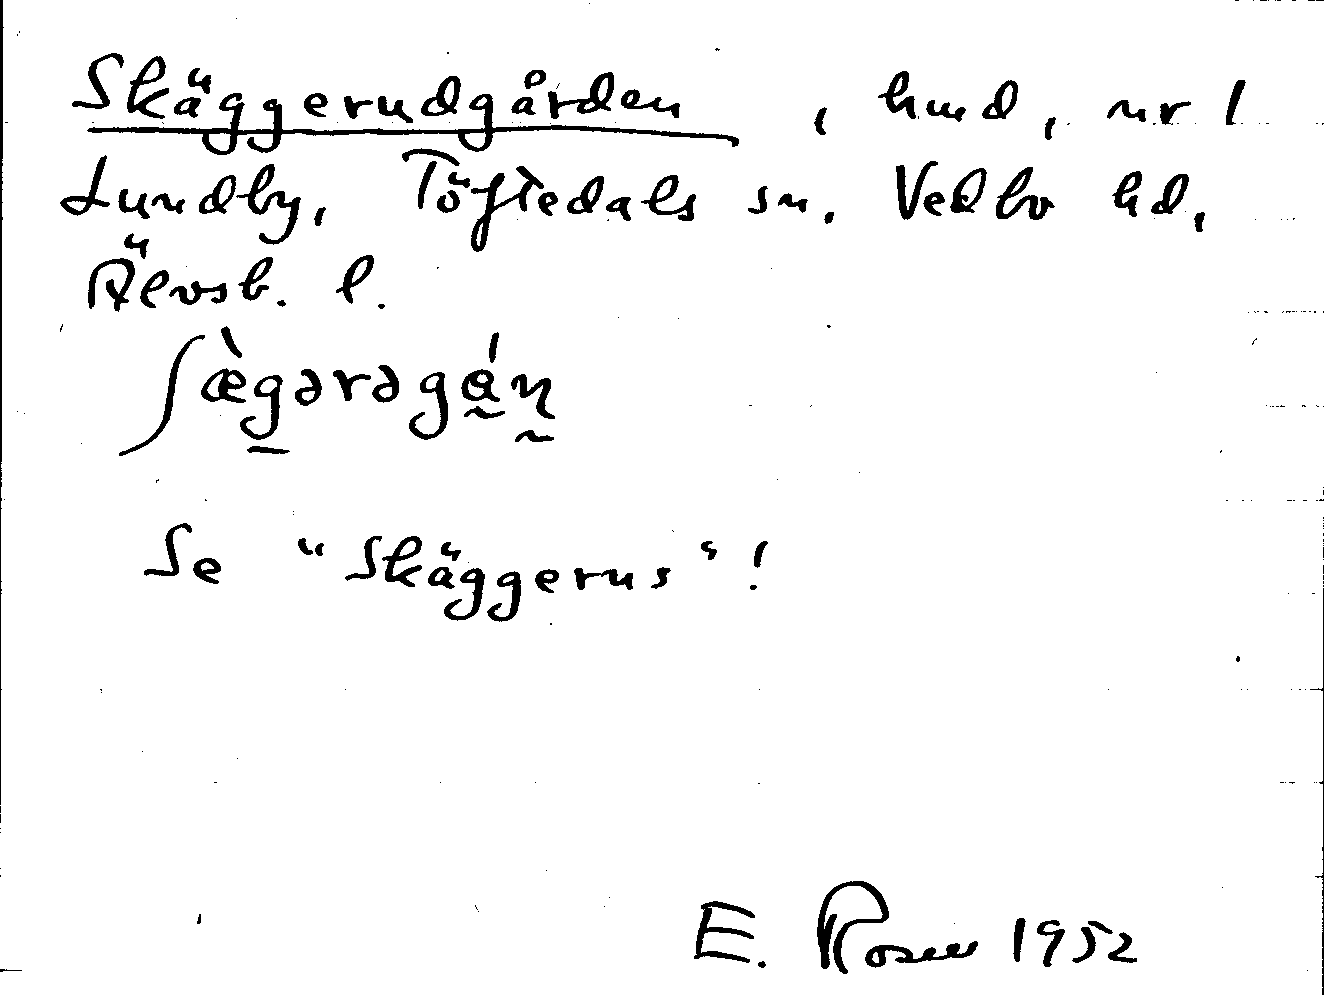 Skäggerudgården, hmd, nr 1
Lundby, Töftedals sn. Vedbo hd,
Älvsb. l.
ʃæ̀gərəgá̰n̰
Se "Skäggerus"!
E. Rosen 1952